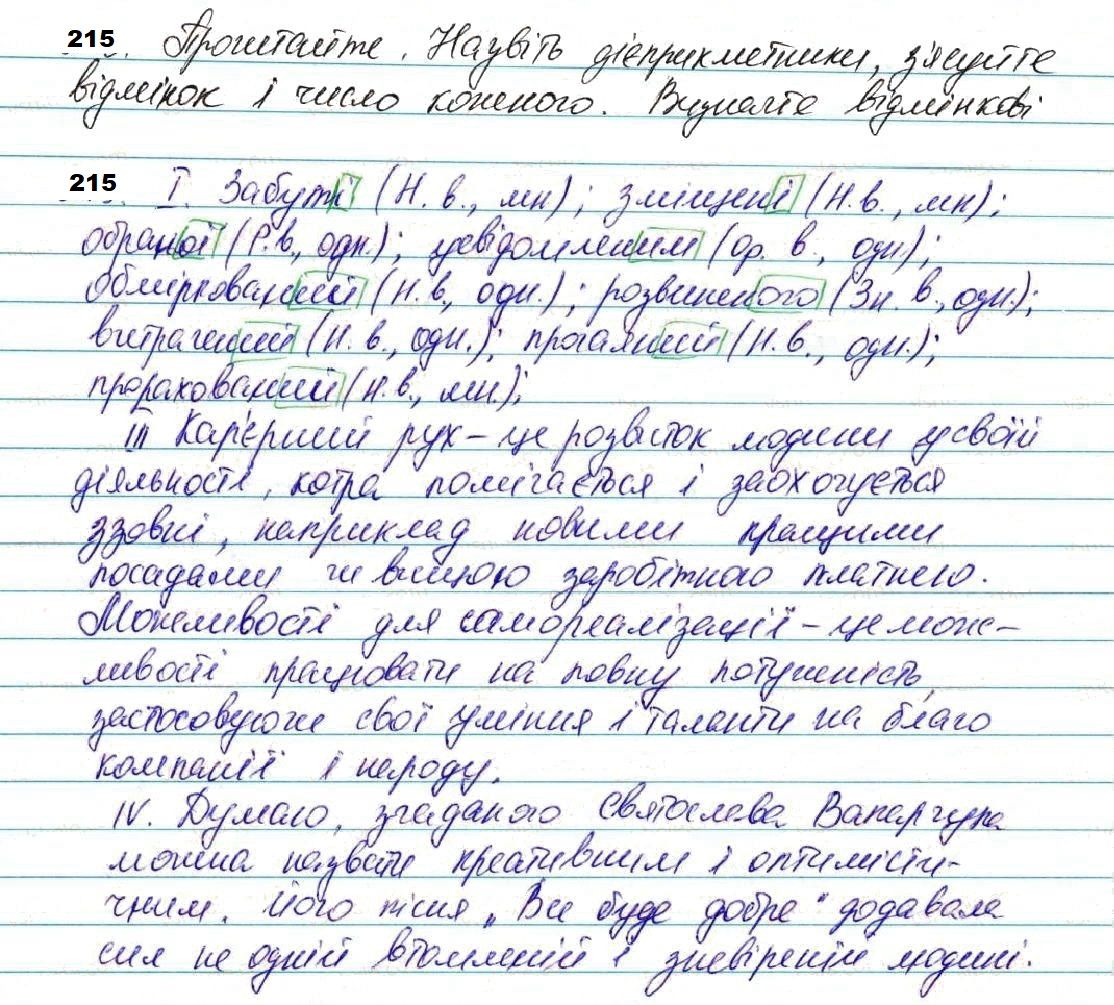 215. Прочитайте. Назвіть дієприкметники, з'ясуйте
відмінок і число кожного. Визначте відмінкові
215 I. Забуті (Н. в., мн); зміщені (Н. в., мн);
обраної (Р. в., одн.); усвідомленим (Ор. в., одн.);
обміркований (Н. в., одн.); розвиненого (Зн. в., одн.);
витрачений (Н. в., одн.); прогаяний (Н. в., одн.);
прорахований (Н. в., мн.);
III Кар'єрний рух – це розвиток людини у своїй
діяльності, котра помічається і заохочується
ззовні, наприклад новими кращими
посадами чи вищою заробітною платнею.
Можливості для самореалізації – це мож-
ливості працювати на повну потужність,
застосовуючи свої уміння і таланти на благо
компанії і народу.
IV. Думаю, згаданого Святослава Вакарчука
можна назвати креативним і оптимісти-
чним. Його пісня „Все буде добре" додавала
сил не одній втомленій і зневіреній людині.